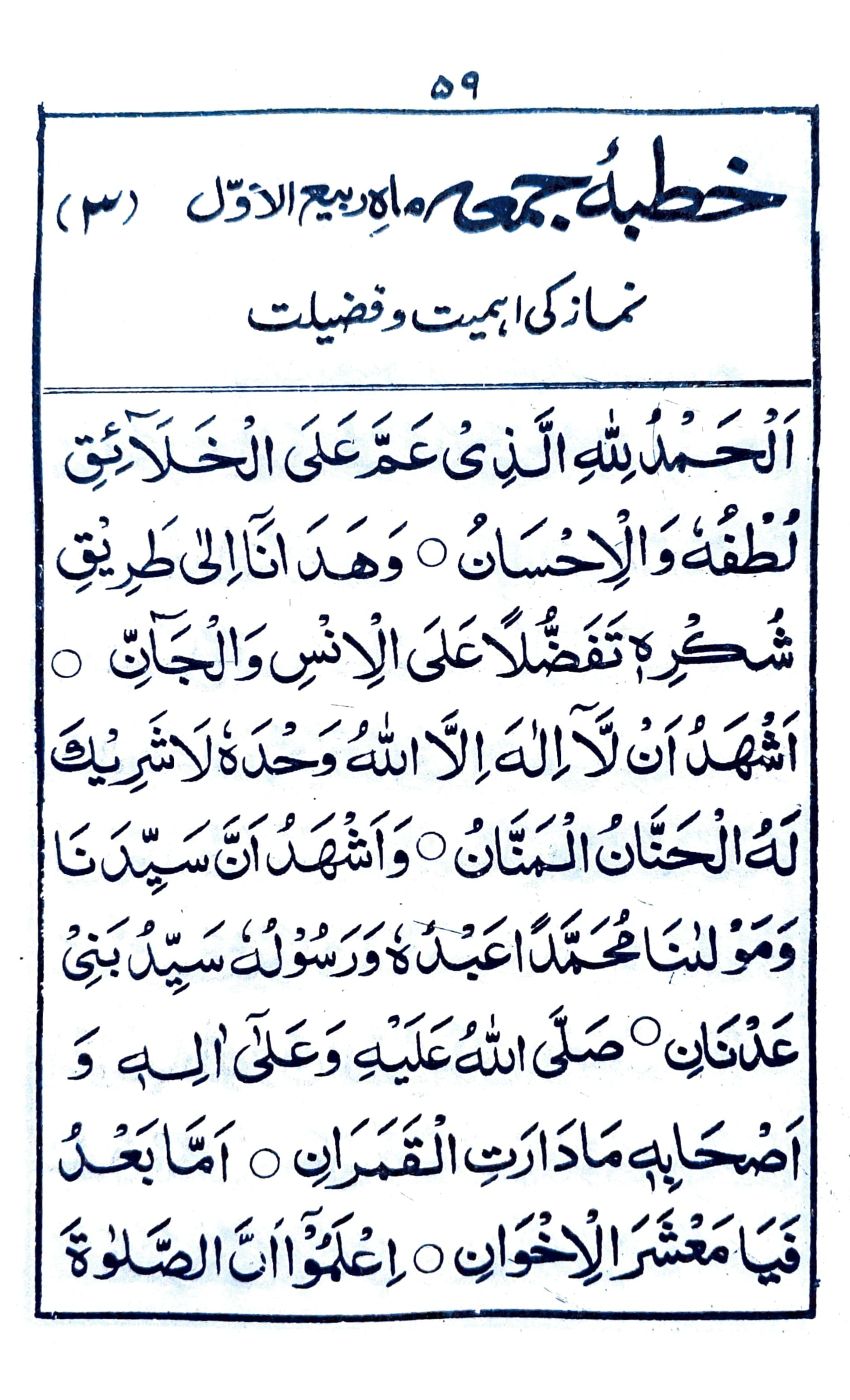 ۵۹
خطبۂ جمعہ ماہِ ربیع الاوّل (۳)
نماز کی اہمیت و فضیلت
اَلْحَمْدُ لِلّٰهِ الَّذِیْ عَمَّ عَلَی الْخَلَآئِقِ
لُطْفُهٗ وَالْاِحْسَانُ ○ وَهَدَانَآ اِلٰی طَرِیْقِ
شُکْرِهٖ تَفَضُّلًا عَلَی الْاِنْسِ وَالْجَآنِّ ○
اَشْهَدُ اَنْ لَّآ اِلٰهَ اِلَّا اللّٰهُ وَحْدَهٗ لَا شَرِیْكَ
لَهُ الْحَنَّانُ الْمَنَّانُ ○ وَاَشْهَدُ اَنَّ سَیِّدَنَا
وَمَوْلٰىنَا مُحَمَّدًا عَبْدُهٗ وَرَسُوْلُهٗ سَیِّدُ بَنِیْ
عَدْنَانِ ○ صَلَّی اللّٰهُ عَلَیْهِ وَعَلٰٓی اٰلِهٖ وَ
اَصْحَابِهٖ مَا دَارَتِ الْقَمَرَانِ ○ اَمَّا بَعْدُ
فَیَا مَعْشَرَ الْاِخْوَانِ ○ اِعْلَمُوْٓا اَنَّ الصَّلٰوةَ